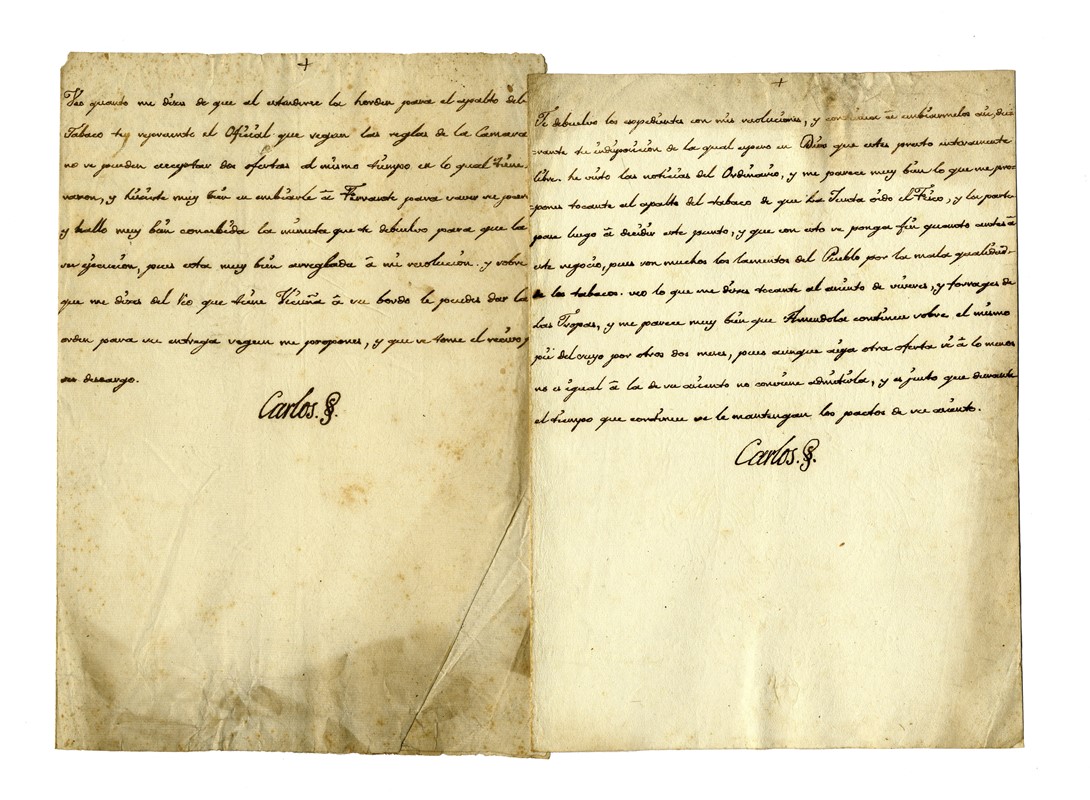 +
Veo quanto me dizes de que al estenderse la horden para el apalto del
Tabaco te representò el Oficial que segun las reglas de la Camara
no se pueden acceptar dos ofertas al mismo tiempo en lo qual tiene
razon, y hiziste muy bien en embiarle â Ferrante para
y hallo muy bien concebida la minuta que te debuelvo para que la
execucion, pues esta muy bien arreglada â mi resolucion. y sobre
que me dizes del que tiene Vicuña â su bordo le puedes dar la
orden para su entrega segun me propones, y que se tome el recivo,
descargo.
Carlos.
+
Te debuelvo los expedientes con mis resoluciones, y continua â embiarmelos assi, du-
rante tu indisposicion de la qual espero en Dios que estes presto enteramente
libre. he visto las noticias del Ordinario, y me parece muy bien lo que me pro-
pones tocante al apalto del tabaco de que la Junta oido el Fisco, y las partes
passe luego â dezidir este punto, y que con esto se ponga fin quanto antes â
este negocio, pues son muchos los lamentos del Pueblo por la mala qualidad
de los tabacos. veo lo que me dizes tocante al asiento de viveres, y forrages de
las Tropas, y me parece muy bien que Amendola continue sobre el mismo
piè del suyo por otros dos meses, pues aunque aiga otra oferta si â lo menos
no es igual â la de su asiento no conviene admitirla, y es justo que durante
el tiempo que continue se le mantengan los pactos de su asiento.
Carlos.